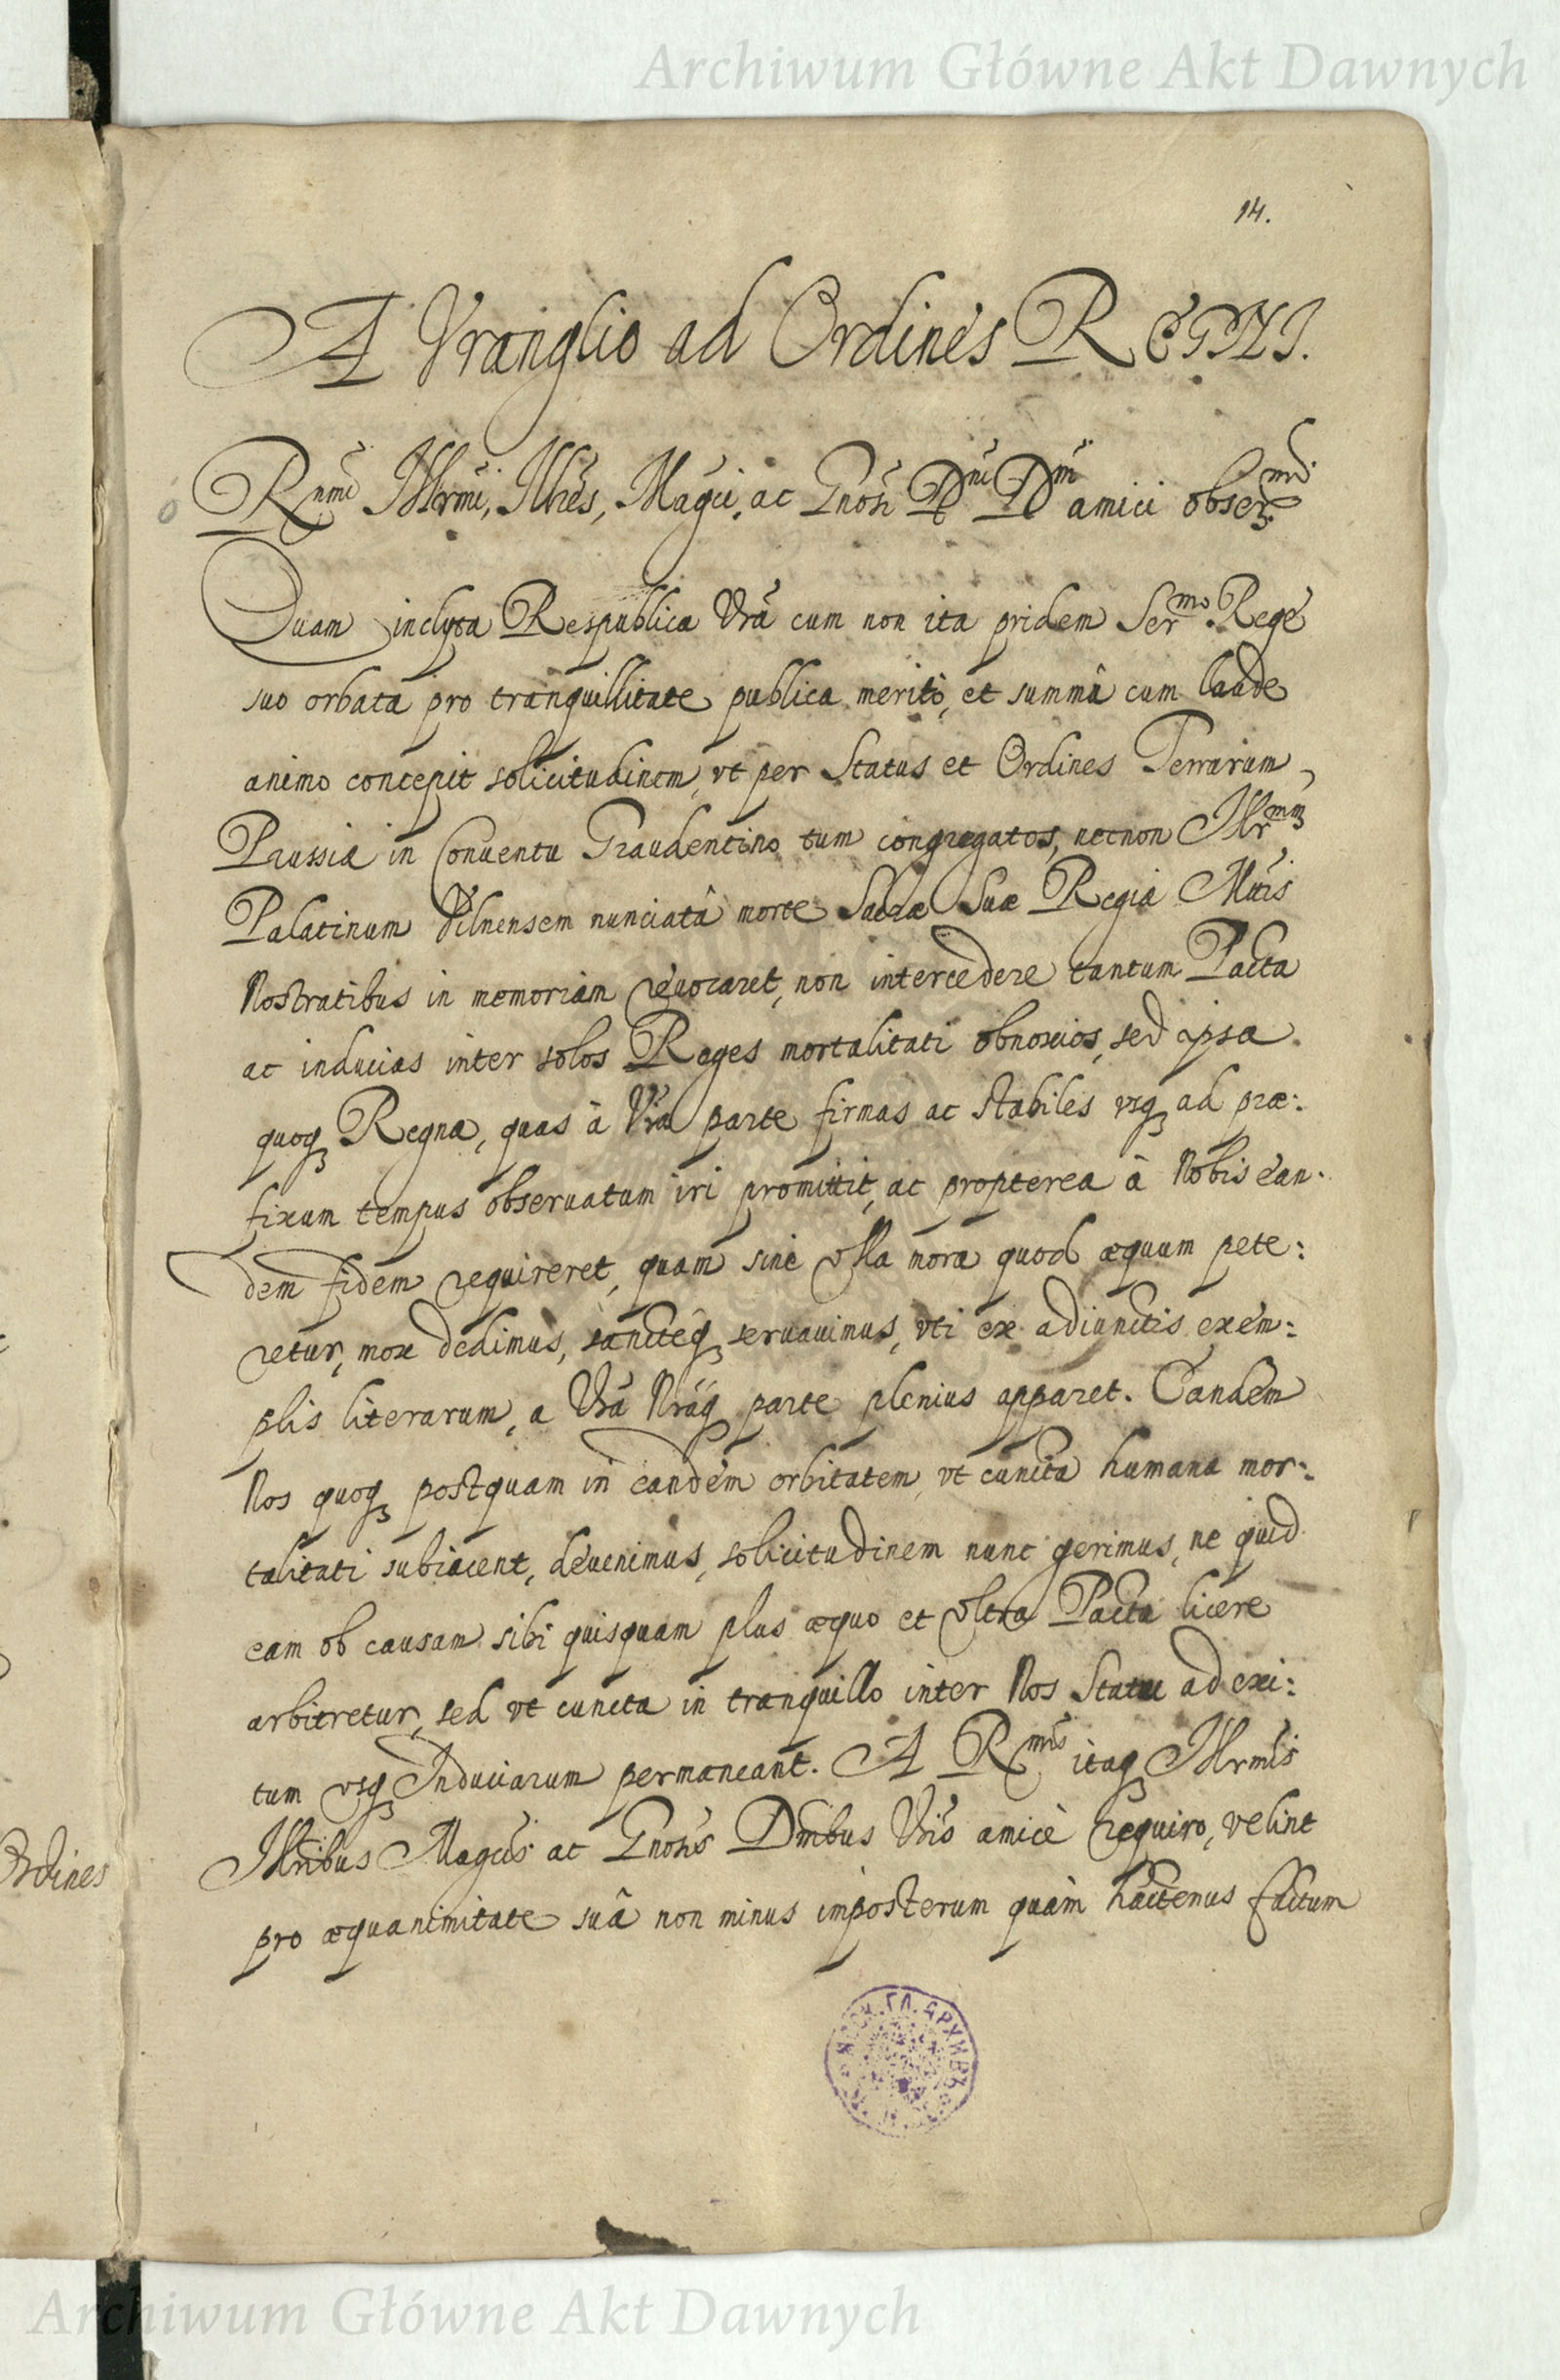 Archiwum Główne Akt Dawnych
14.
A Vranglio ad Ordines REGNI.
Rnmi Illrmi, Illres, Magci, ac Gnosi Dni Dni amici obsermi
Quam inclyta Respublica Vra cum non ita pridem Sermo Rege
suo orbata pro tranquillitate publica merito, et summâ cum laude
animo concepit solicitudinem, vt per Status et Ordines Terrarum
Prussiæ in Conuentu Graudentino tum congregatos, necnon Illrmm
Palatinum Vilnensem nunciatâ morte Sacræ Suæ Regiæ Mtis
Nostratibus in memoriam reuocaret, non intercedere tantum Pacta
ac inducias inter solos Reges mortalitati obnoxios, sed ipsa
quoq Regna, quas à Vra parte firmas ac stabiles vsq ad præ:
fixum tempus obseruatum iri promittit, ac propterea à Nobis ean:
dem fidem requireret, quam sine vlla mora quod æquum pete:
retur, mox dedimus, sancteq seruauimus, vti ex adiunctis exem:
plis literarum, a Vra Nraq parte plenius apparet. Tandem
Nos quoq postquam in eandem orbitatem, vt cuncta humana mor:
talitati subiacent, deuenimus, solicitudinem nunc gerimus, ne quid
eam ob causam sibi quisquam plus æquo et vltra Pacta licere
arbitretur, sed vt cuncta in tranquillo inter Nos Statu ad exi:
tum vsq Induciarum permaneant. A Rmis itaq Illrmis
Illribus Magcis ac Gnosis Dnibus Vris amicè requiro, velint
pro æquanimitate suâ non minus imposterum quàm hactenus factum
Ordines
Archiwum Główne Akt Dawnych